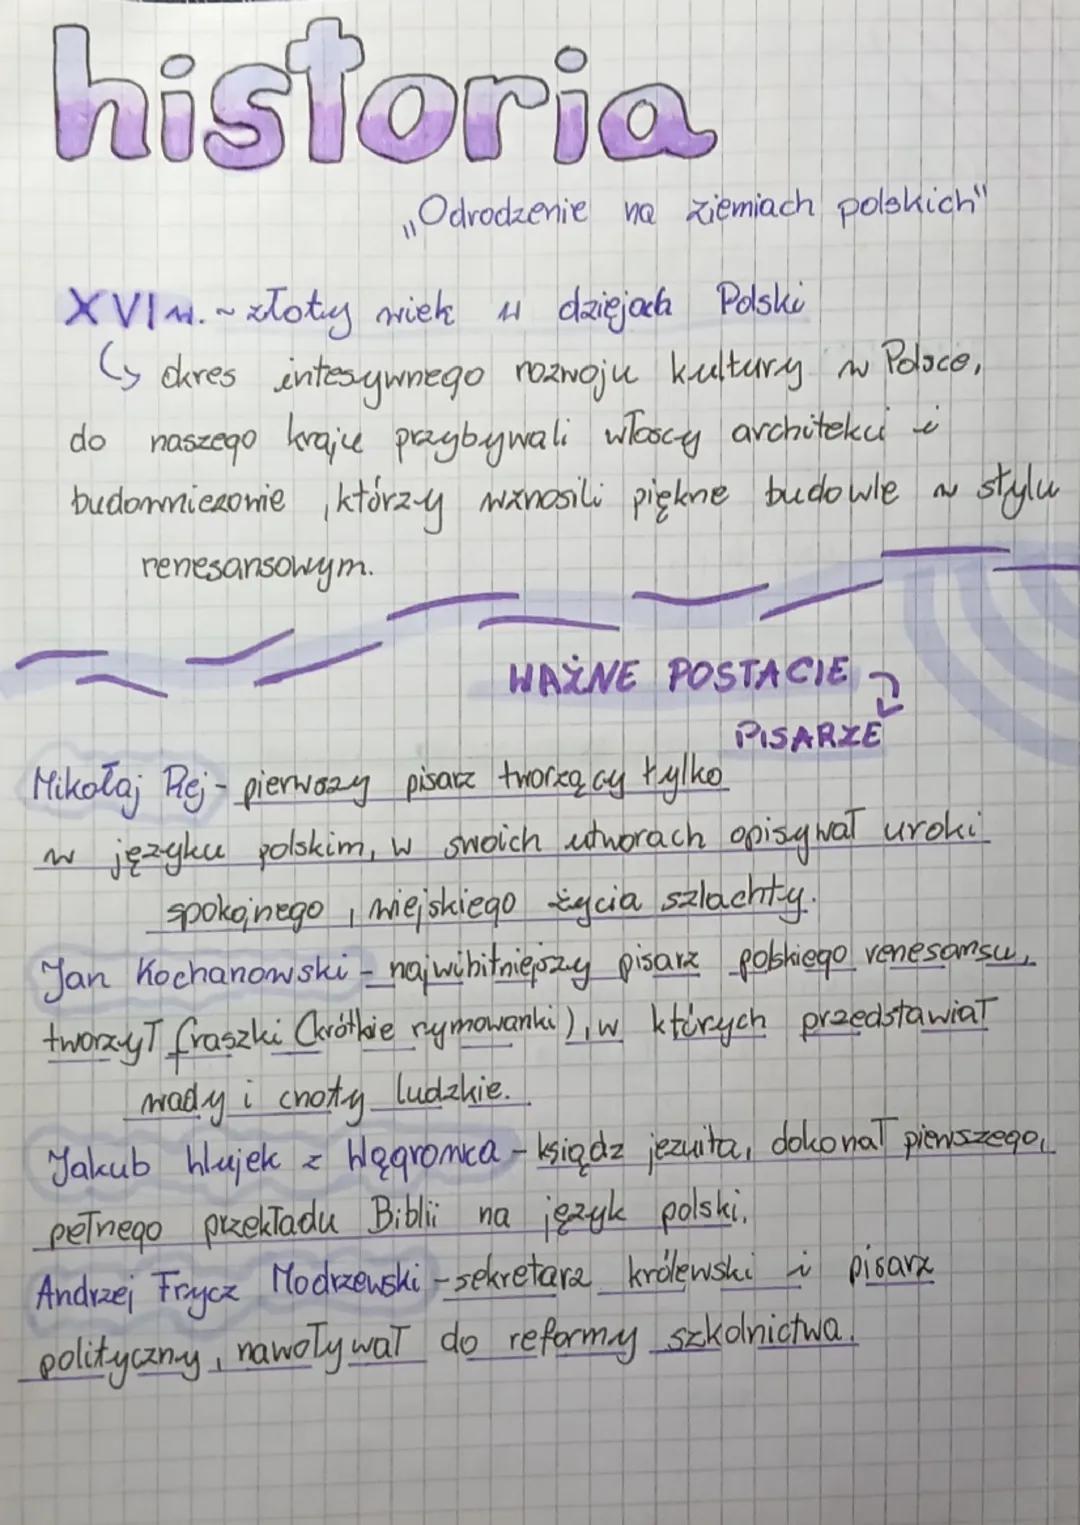 historia
„Odrodzenie na ziemiach polskich"
XVI w. ~ złoty wiek w dziejach Polski
↳ okres intesywnego rozwoju kultury w Polsce,
do naszego kraju przybywali włoscy architekci i
budowniczowie, którzy wznosili piękne budowle w stylu
renesansowym.
WAŻNE POSTACIE
PISARZE
Mikołaj Rej - pierwszy pisarz tworzący tylko
w języku polskim, w swoich utworach opisywał uroki
spokojnego, wiejskiego życia szlachty.
Jan Kochanowski - najwibitniejszy pisarz polskiego renesansu,
tworzył fraszki (krótkie rymowanki), w których przedstawiał
wady i cnoty ludzkie.
Jakub Wujek z Wągrowca - ksiądz jezuita, dokonał pierwszego,
pełnego przekładu Biblii na język polski.
Andrzej Frycz Modrzewski - sekretarz królewski i pisarz
polityczny, nawoływał do reformy szkolnictwa.